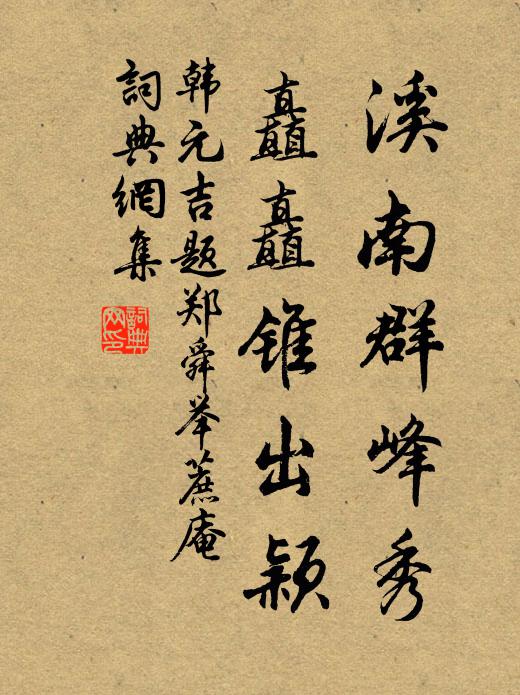 溪南群峰秀
矗矗锥出颖
韩元吉题郑舜举蔗庵
詞典網集
詞典
网印